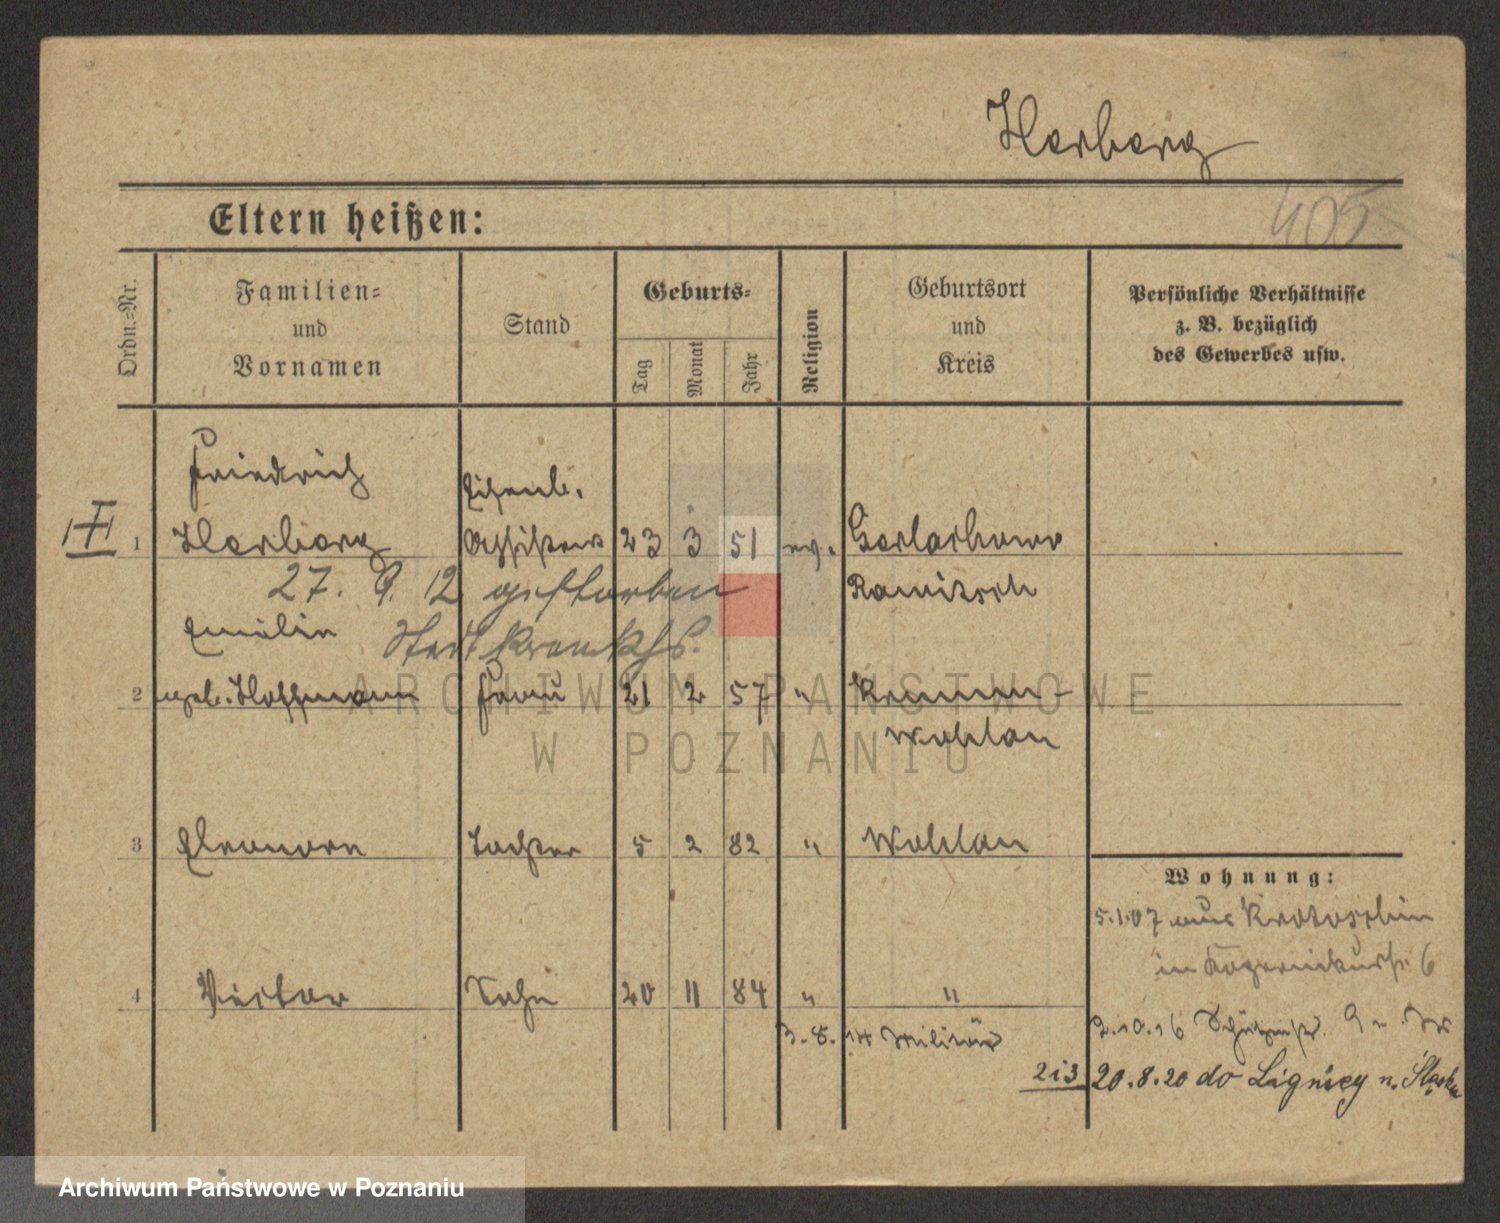 Herberg
405
Eltern heißen:
Ordn.=Nr.
Familien=
und
Vornamen
Stand
Geburts=
Tag
Monat
Jahr
Religion
Geburtsort
und
Kreis
Persönliche Verhältnisse
z. B. bezüglich
des Gewerbes usw.
Friedrich Eisenb.
1 Herberg Assistent 23 3 51 ev. Gorlachowo
27. 9. 12 gestorben Rawitsch
Emilie Stadtkrankhs.
2 geb. Hoffmann Frau 21 2 57 "
Wohlau
3 Eleonore Tochter 5 2 82 " Wohlau
Wohnung:
5.1.07 aus Krotoschin
in 6
4 Victor Sohn 20 11 84 " "
3.8.14 Militär
2.10.16 Schützenstr. 9
2i3 20.8.20 do Lignicy n. Śląsku
ARCHIWUM PAŃSTWOWE
W POZNANIU
Archiwum Państwowe w Poznaniu